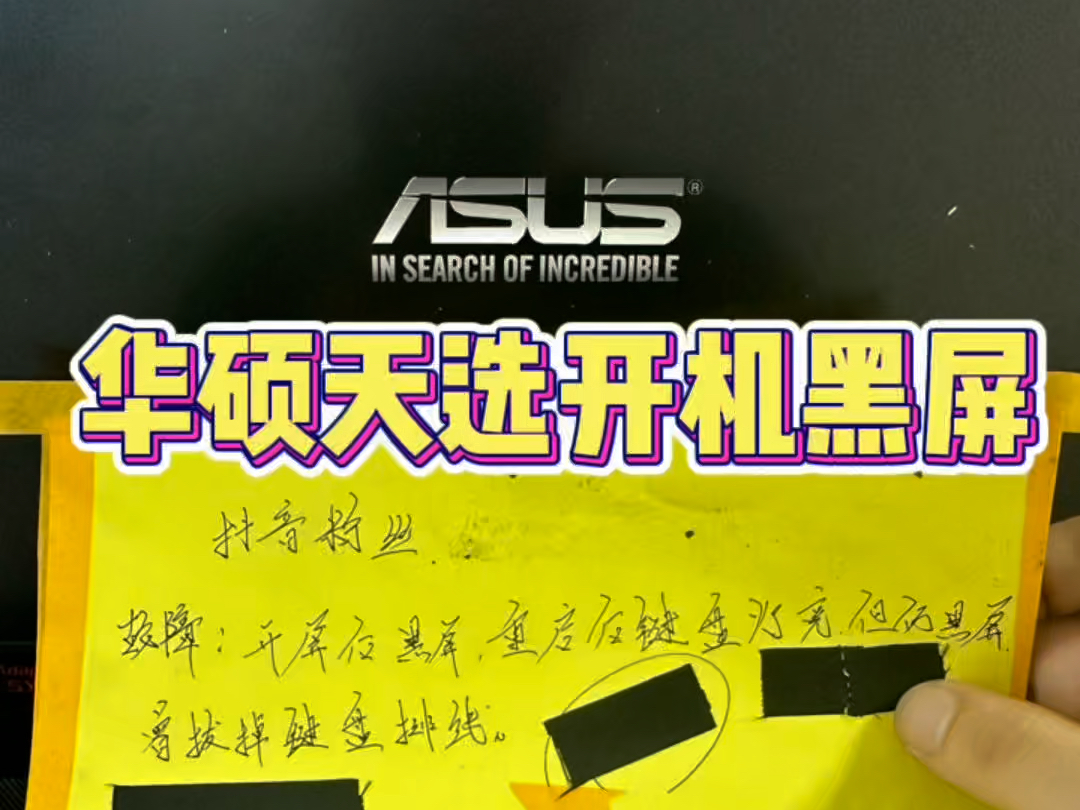 ASUS®
IN SEARCH OF INCREDIBLE
华硕天选开机黑屏
抖音粉丝
故障：开屏后黑屏，重启后键盘灯亮，但仍黑屏
曾拔掉键盘排线。